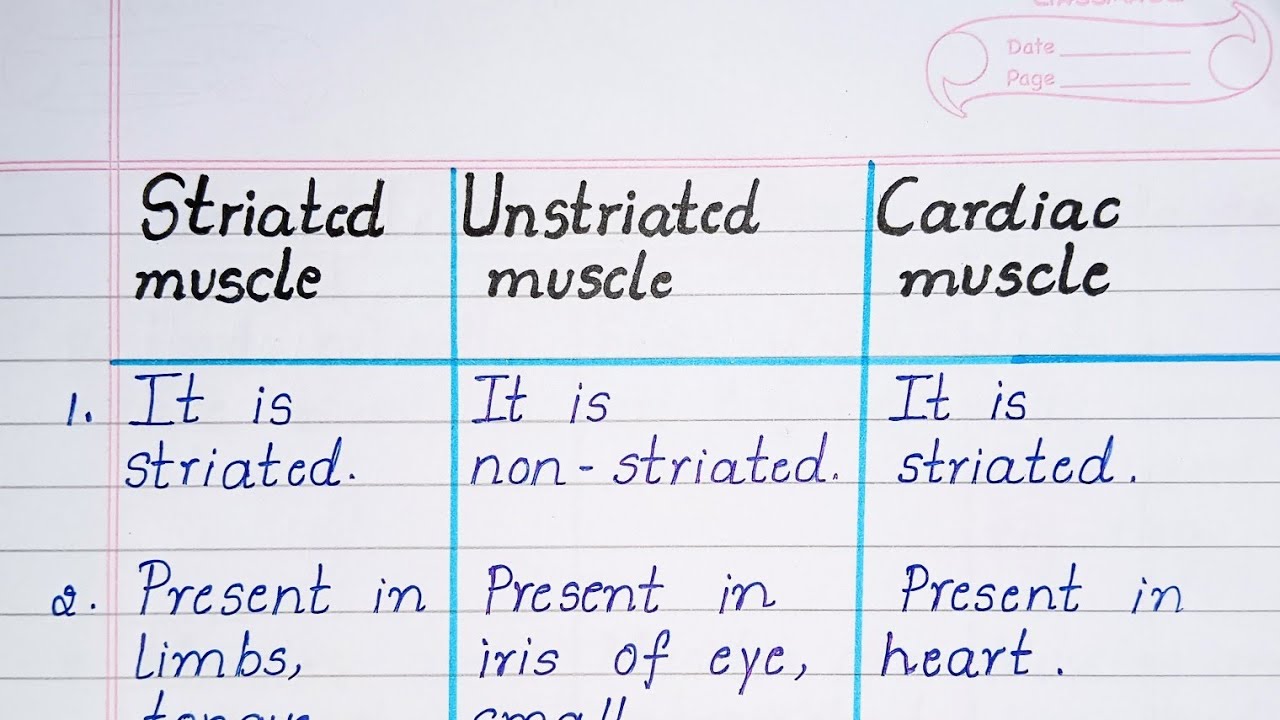 Date
Page
Striated Unstriated Cardiac
muscle muscle muscle
1. It is It is It is
striated. non-striated. striated.
2. Present in Present in Present in
limbs, iris of eye, heart.